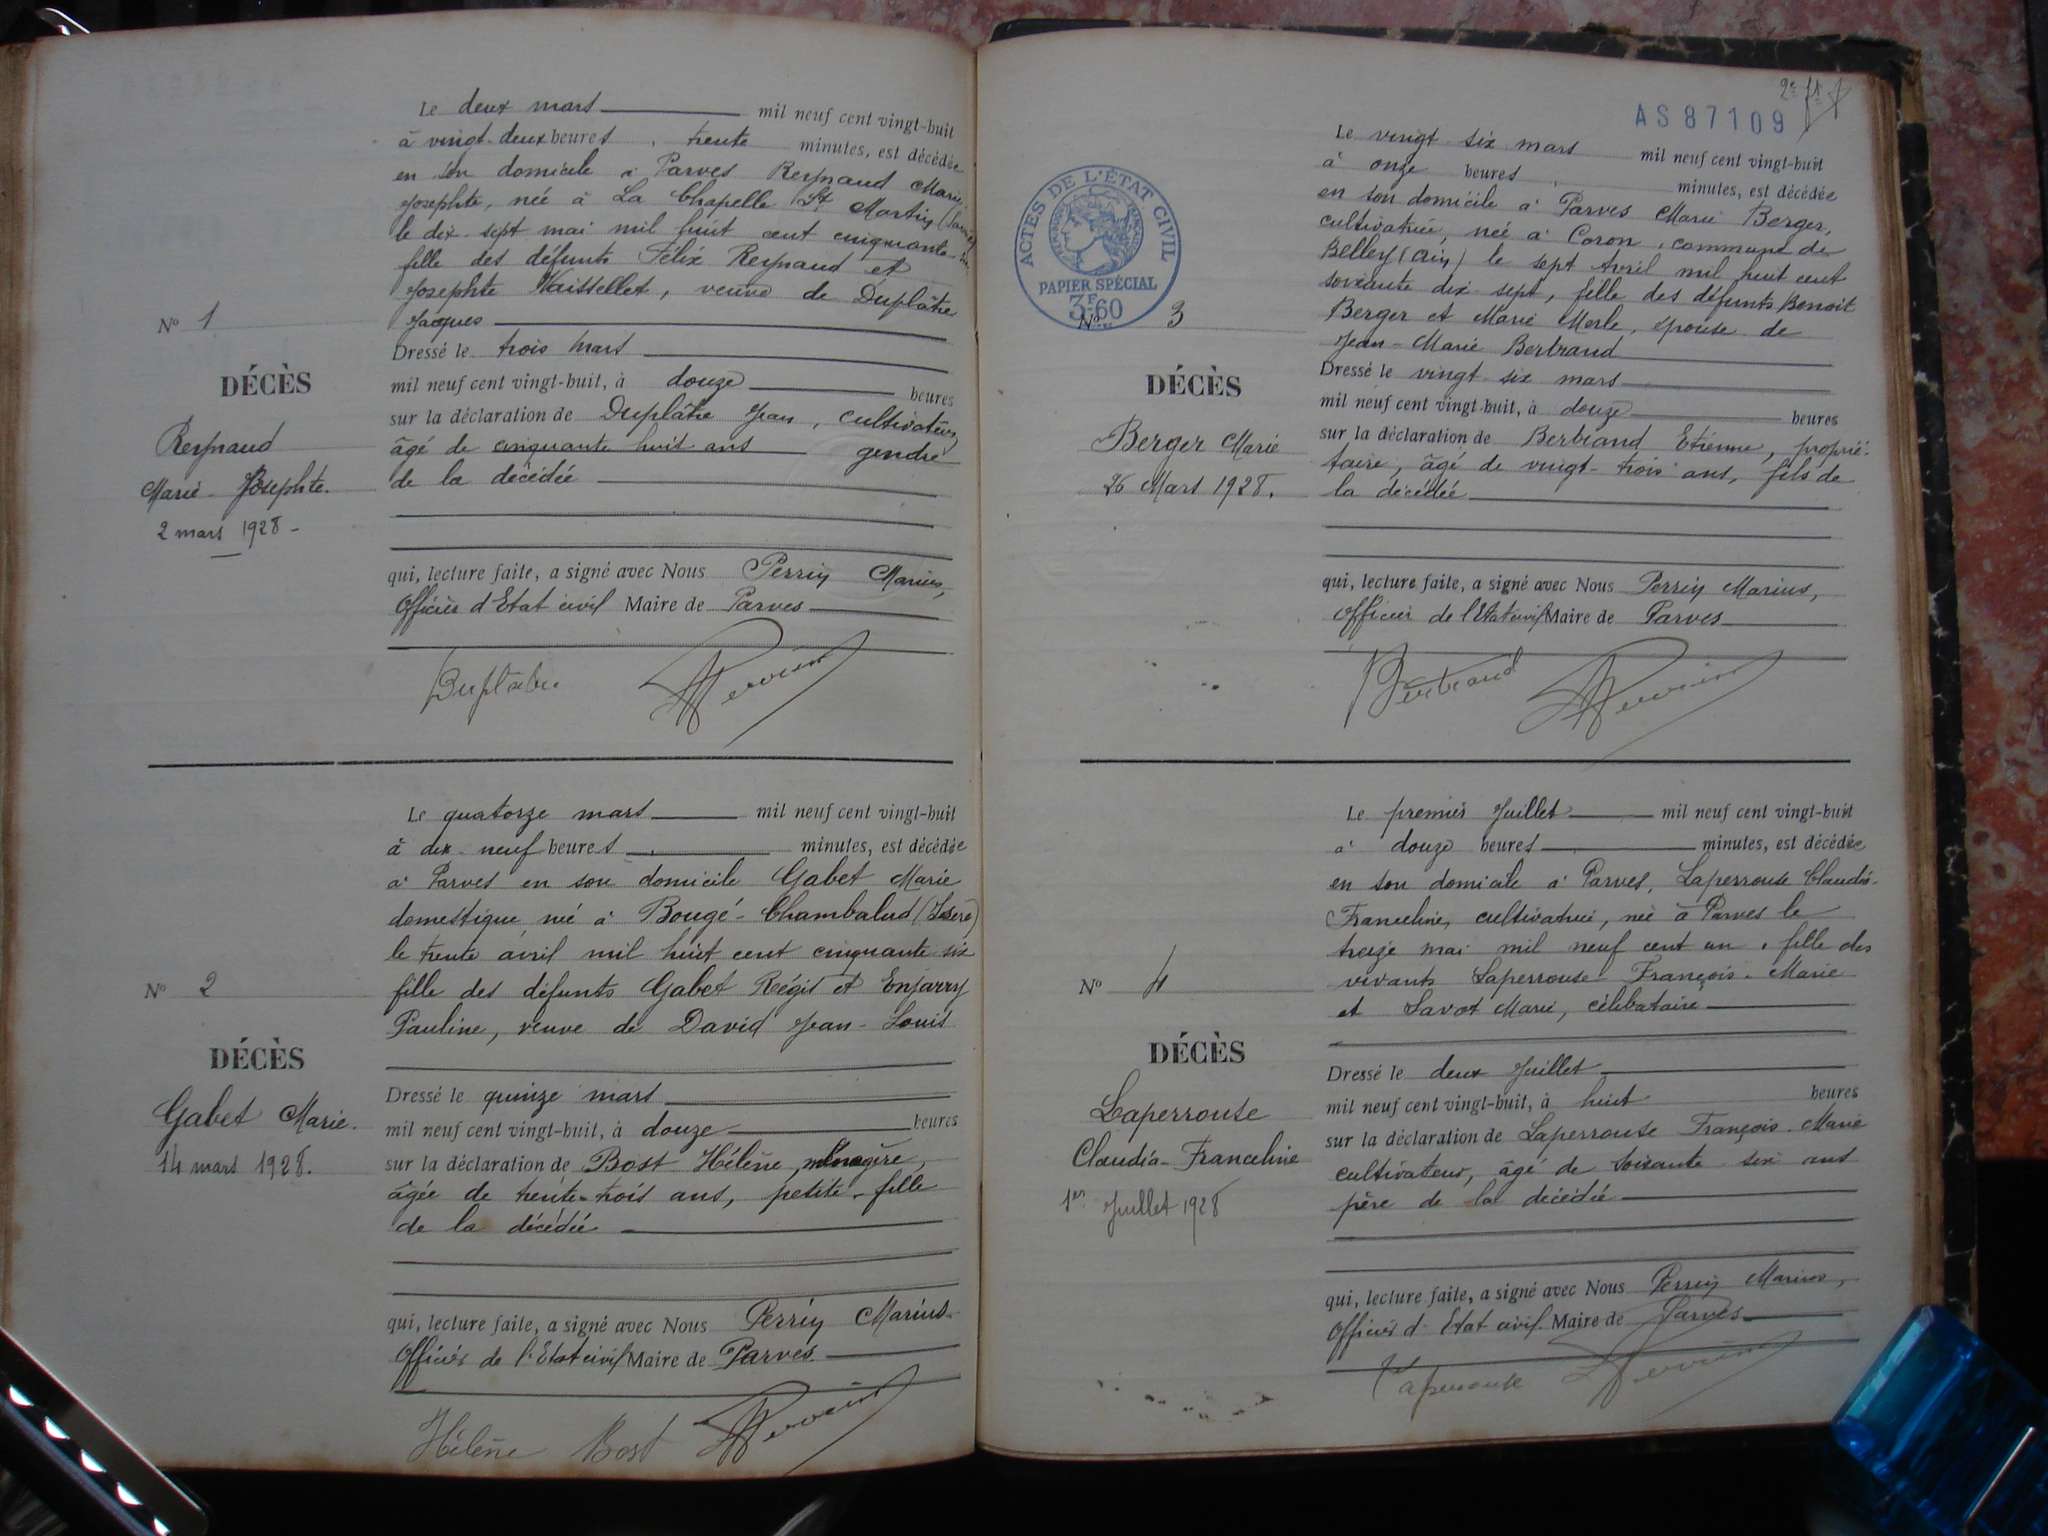 Le deux mars mil neuf cent vingt-huit
à vingt-deux heures, trente minutes, est décédée
en son domicile à Parves Reynaud Marie
Josephte, née à La Chapelle St Martin
le dix-sept mai mil huit cent cinquante
fille des défunts Félix Reynaud et
Josephte Vaissellet, veuve de Duplâtre
Jacques
Nº 1
Dressé le trois mars
DÉCÈS
mil neuf cent vingt-huit, à douze heures
sur la déclaration de Duplâtre Jean, cultivateur,
Reynaud
âgé de cinquante huit ans gendre
Marie-Josephte.
de la décédée
2 mars 1928
qui, lecture faite, a signé avec Nous Perrin Marius,
Officier d'Etat civil Maire de Parves
Duplâtre Perrin
Le quatorze mars mil neuf cent vingt-huit
à dix-neuf heures, minutes, est décédée
à Parves en son domicile Gabet Marie
domestique, né à Bougé-Chambalud (Isère)
le trente avril mil huit cent cinquante six
fille des défunts Gabet Régis et Enjarry
Nº 2
Pauline, veuve de David Jean-Louis
DÉCÈS
Dressé le quinze mars
Gabet Marie.
mil neuf cent vingt-huit, à douze heures
14 mars 1928.
sur la déclaration de Bost Hélène, ménagère,
âgée de trente-trois ans, petite-fille
de la décédée
qui, lecture faite, a signé avec Nous Perrin Marius
Officier de l'Etat civil Maire de Parves
Hélène Bost Perrin
AS87109
Le vingt six mars mil neuf cent vingt-huit
à onze heures, minutes, est décédée
en son domicile à Parves Marie Berger,
cultivatrice, née à Coron, commune de
Belley (Ain) le sept Avril mil huit cent
soixante dix sept, fille des défunts Benoit
Berger et Marie Merle, épouse de
Jean-Marie Bertrand
ACTES DE L'ÉTAT CIVIL
PAPIER SPÉCIAL
3F60
Nº 3
Dressé le vingt six mars
DÉCÈS
mil neuf cent vingt-huit, à douze heures
Berger Marie
sur la déclaration de Bertrand Etienne, proprié-
taire, âgé de vingt-trois ans, fils de
26 Mars 1928.
la décédée
qui, lecture faite, a signé avec Nous Perrin Marius,
Officier de l'Etat civil Maire de Parves
Bertrand Perrin
Le premier Juillet mil neuf cent vingt-huit
à douze heures minutes, est décédée
en son domicile à Parves, Laperrouse Claudia-
Franceline, cultivatrice, née à Parves le
treize mai mil neuf cent un, fille des
vivants Laperrouse François-Marie
Nº 4
et Savot Marie, célibataire
DÉCÈS
Dressé le deux Juillet
Laperrouse
mil neuf cent vingt-huit, à huit heures
Claudia-Franceline
sur la déclaration de Laperrouse François-Marie
cultivateur, âgé de soixante six ans
1er Juillet 1928
père de la décédée
qui, lecture faite, a signé avec Nous Perrin Marius,
Officier d'Etat civil Maire de Parves
Laperrouse Perrin